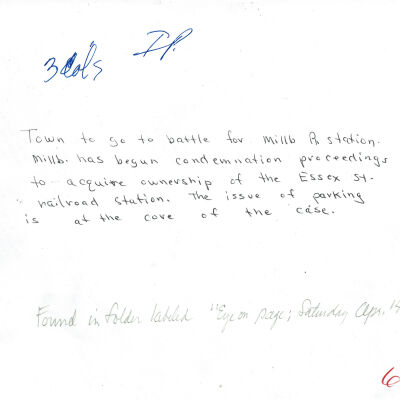 3cols IP.
Town to go to battle for Millb R. station.
Millb. has begun condemnation proceedings
to acquire ownership of the Essex St.
railroad station. The issue of parking
is at the core of the case.
Found in folder labeled "Eye on page; Saturday Apr. 1
6